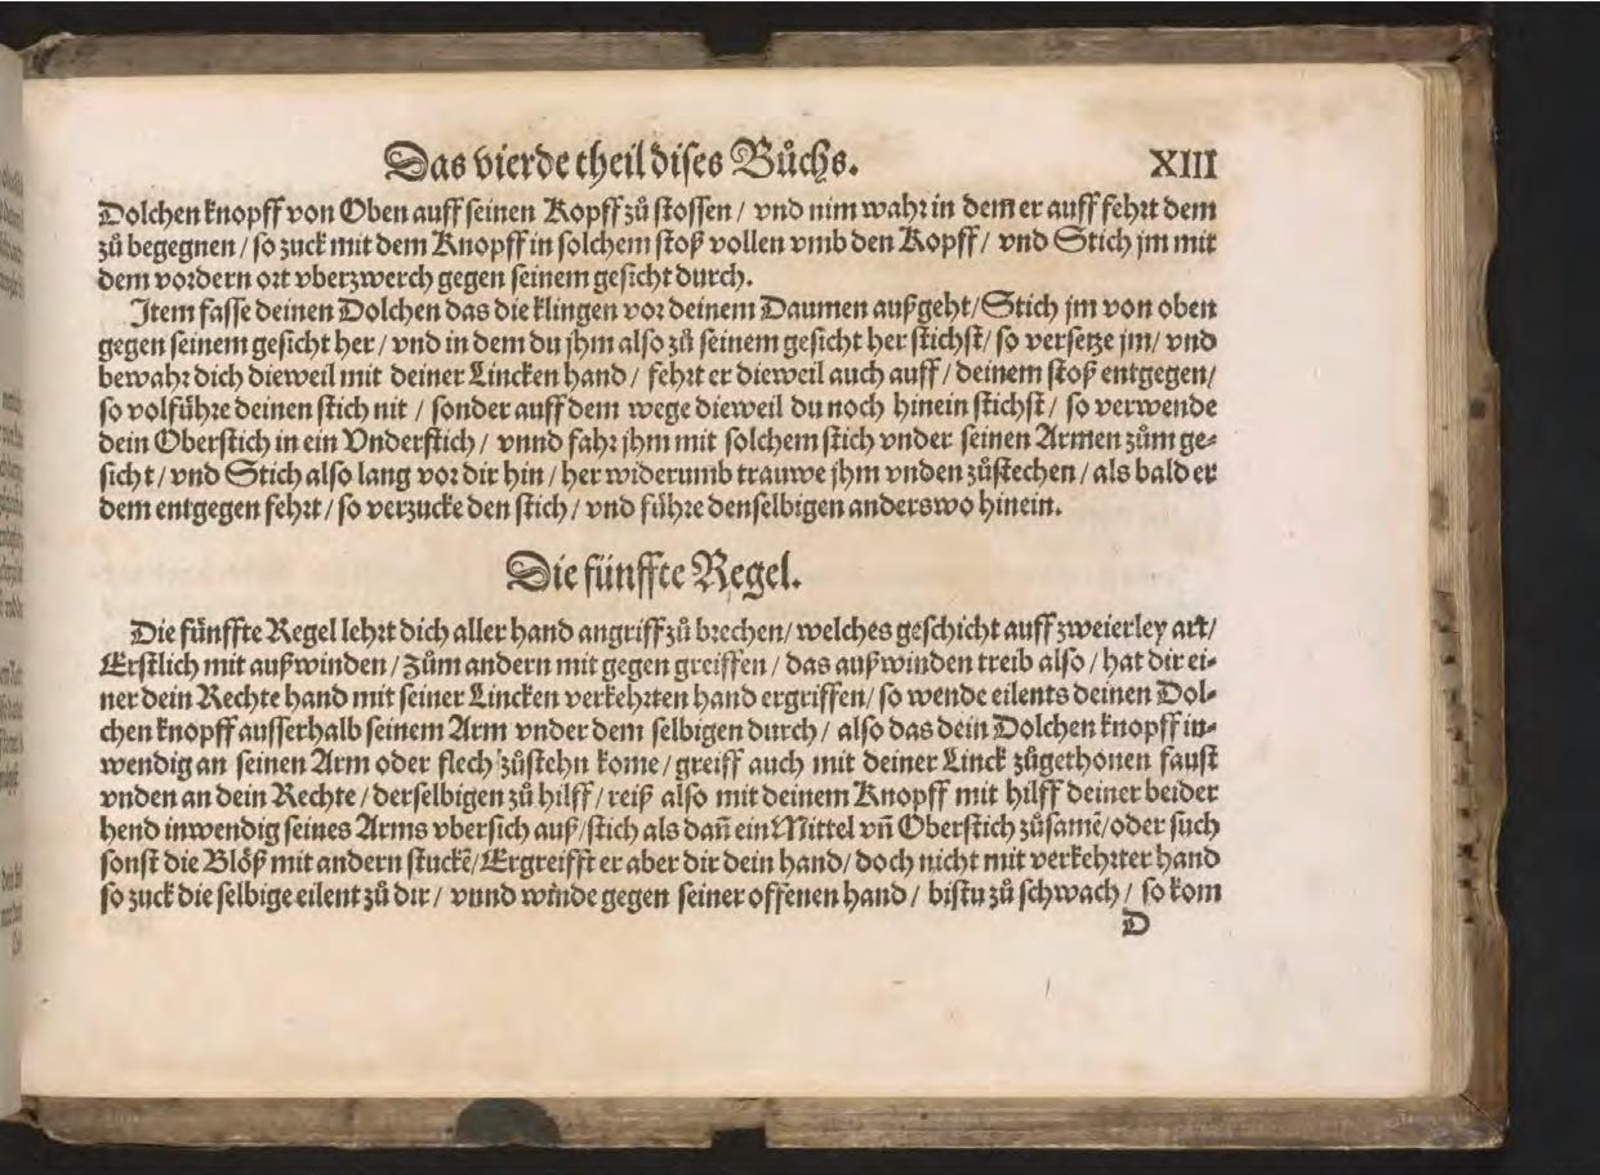 Das vierde theil dises Bůchs. XIII
Dolchen knopff von Oben auff seinen Kopff zů stossen / vnd nim wahr in dem er auff fehrt dem
zů begegnen / so zuck mit dem Knopff in solchem stoß vollen vmb den Kopff / vnd Stich jm mit
dem vordern ort vberzwerch gegen seinem gesicht durch.
Item fasse deinen Dolchen das die klingen vor deinem Daumen außgeht / Stich jm von oben
gegen seinem gesicht her / vnd in dem du jhm also zů seinem gesicht her stichst / so versetze jm / vnd
bewahr dich dieweil mit deiner Lincken hand / fehrt er dieweil auch auff / deinem stoß entgegen /
so volführe deinen stich nit / sonder auff dem wege dieweil du noch hinein stichst / so verwende
dein Oberstich in ein Vnderstich / vnnd fahr jhm mit solchem stich vnder seinen Armen zům ge-
sicht / vnd Stich also lang vor dir hin / her widerumb trauwe jhm vnden zůstechen / als bald er
dem entgegen fehrt / so verzucke den stich / vnd führe denselbigen anderswo hinein.
Die fünffte Regel.
Die fünffte Regel lehrt dich aller hand angriff zů brechen / welches geschicht auff zweierley art /
Erstlich mit außwinden / Zům andern mit gegen greiffen / das außwinden treib also / hat dir ei-
ner dein Rechte hand mit seiner Lincken verkehrten hand ergriffen / so wende eilents deinen Dol-
chen knopff ausserhalb seinem Arm vnder dem selbigen durch / also das dein Dolchen knopff in-
wendig an seinen Arm oder flech zůstehn kome / greiff auch mit deiner Linck zůgethonen faust
vnden an dein Rechte / derselbigen zů hilff / reiß also mit deinem Knopff mit hilff deiner beider
hend inwendig seines Arms vbersich auß / stich als dañ ein Mittel vñ Oberstich zůsamẽ / oder such
sonst die Blöß mit andern stuckẽ / Ergreifft er aber dir dein hand / doch nicht mit verkehrter hand
so zuck die selbige eilent zů dir / vnnd winde gegen seiner offenen hand / bistu zů schwach / so kom
D